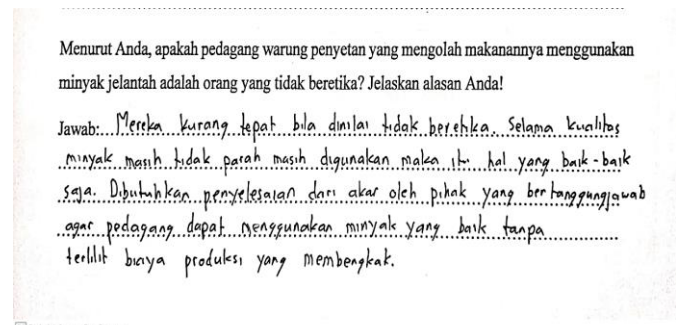 Menurut Anda, apakah pedagang warung penyetan yang mengolah makanannya menggunakan
minyak jelantah adalah orang yang tidak beretika? Jelaskan alasan Anda!
Jawab: Mereka kurang tepat bila dinilai tidak beretika. Selama kualitas
minyak masih tidak parah masih digunakan maka itu hal yang baik-baik
saja. Dibutuhkan penyelesaian dari akar oleh pihak yang bertanggungjawab
agar pedagang dapat menggunakan minyak yang baik tanpa
terlilit biaya produksi yang membengkak.